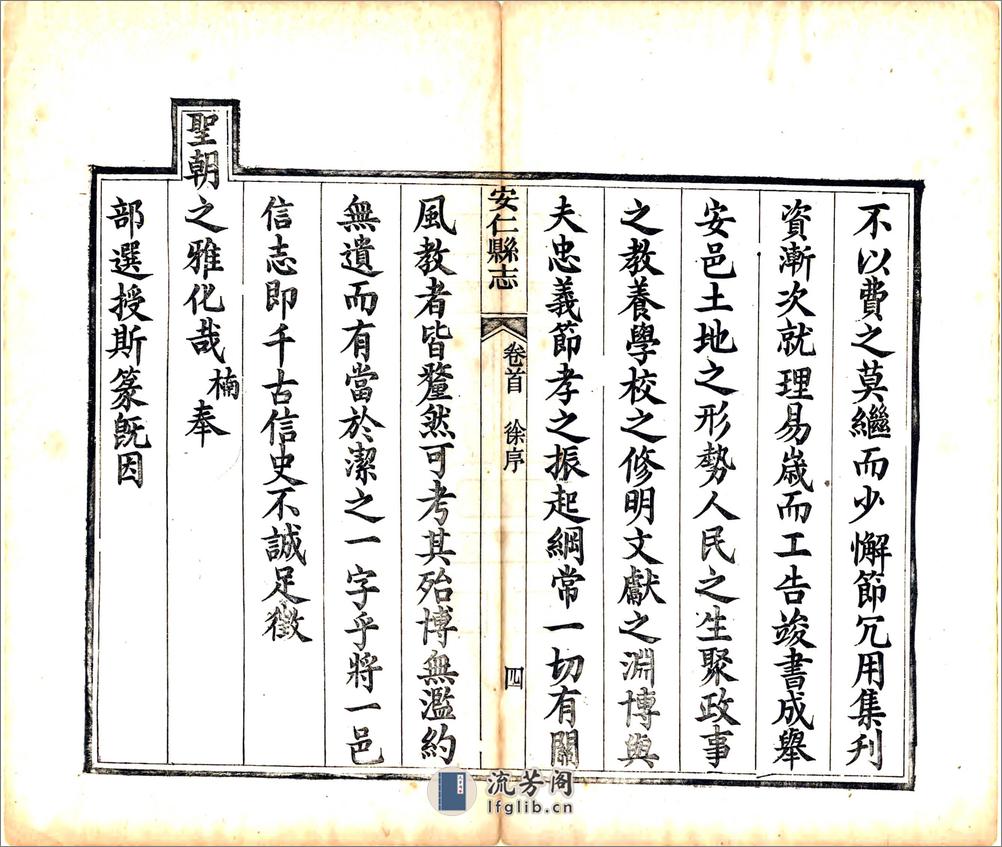 不以費之莫繼而少懈節冗用集刋
資漸次就理易歲而工告竣書成舉
安邑土地之形勢人民之生聚政事
之教養學校之修明文獻之淵博與
夫忠義節孝之振起綱常一切有關
安仁縣志
卷首 徐序
四
風教者皆釐然可考其殆博無濫約
無遺而有當於潔之一字乎將一邑
信志即千古信史不誠足徵
聖朝之雅化哉楠奉
部選授斯篆旣因
流芳阁
lfglib.cn